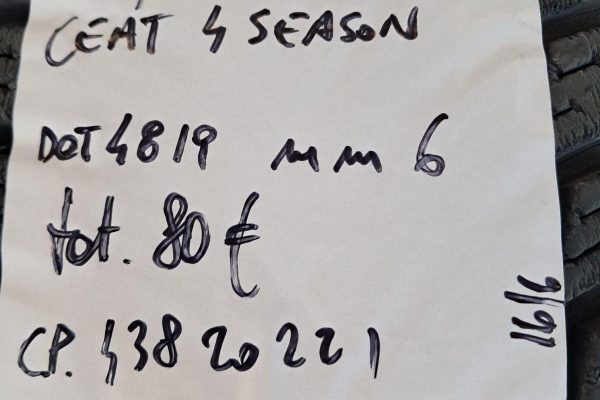 CEAT 4 SEASON
DOT 4819 mm 6
tot. 80 €
CP. 43820221